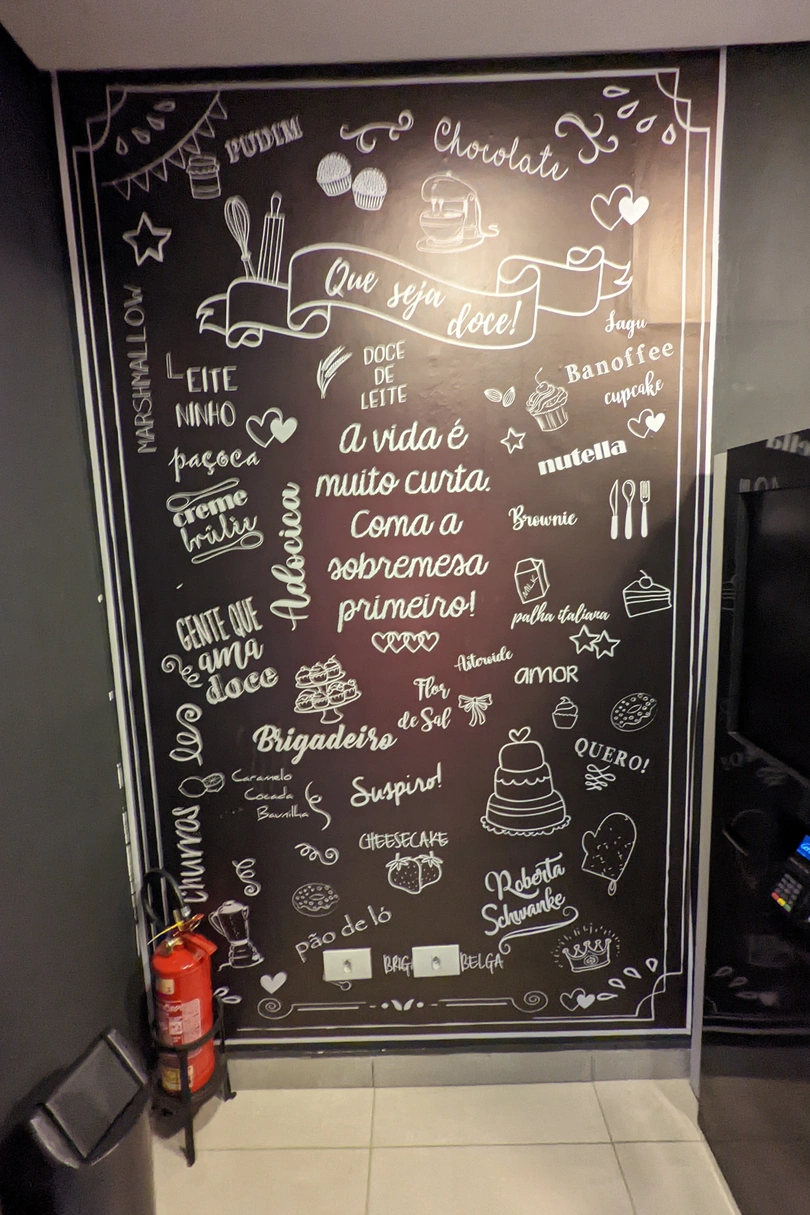 PUDIM
Chocolate
Que seja
doce!
MARSHMALLOW
Sagu
Banoffee
cupcake
LEITE
NINHO
DOCE
DE
LEITE
paçoca
creme
brûlée
nutella
A vida é
muito curta.
Coma a
sobremesa
primeiro!
Adocica
Brownie
MILK
palha italiana
GENTE QUE
ama
doce
Asteroide
amor
Flor
de Sal
Brigadeiro
QUERO!
Caramelo
Cocada
Baunilha
Suspiro!
churros
CHEESECAKE
Roberta
Schwanke
pão de ló
BRIG
BELGA